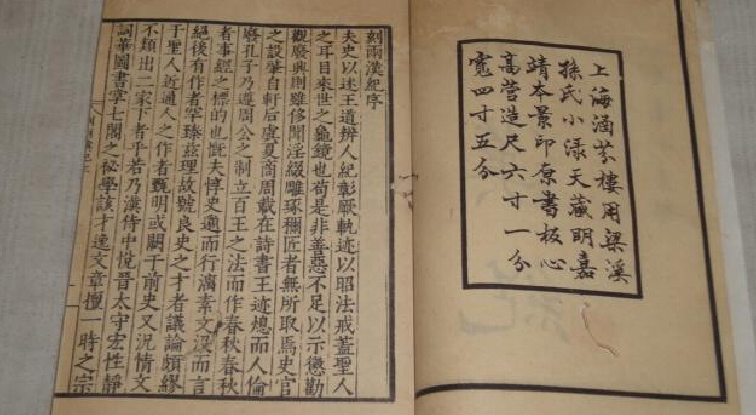 上海涵芬樓用梁溪
孫氏小渌天藏明嘉
靖本景印原書板心
高營造尺六寸一分
寬四寸五分
刻兩漢紀序
夫史以述王道辨人紀彰厥軌迹以昭法戒蓋聖人
之耳目來世之龜鏡也苟是非善惡不足以示懲勸
觀廢興則雖侈聞淫綴雕琢欄匠者無所取焉史官
之設肇自軒后虞夏商周載在詩書王迹熄而人倫
斁孔子乃遵周公之制立百王之法而作春秋春秋
者事經之標的也慨夫惇史適而行素文沒而言
絕後有作者罕臻茲理故號良史之才者議論頗繆
于聖人近通人之作者甄明或闕于前史又況情文
不類出二家下者乎若乃漢侍中悅晉太守宏性靜
詞華圖書掌七閣之祕學該才逸文章擅一時之宗